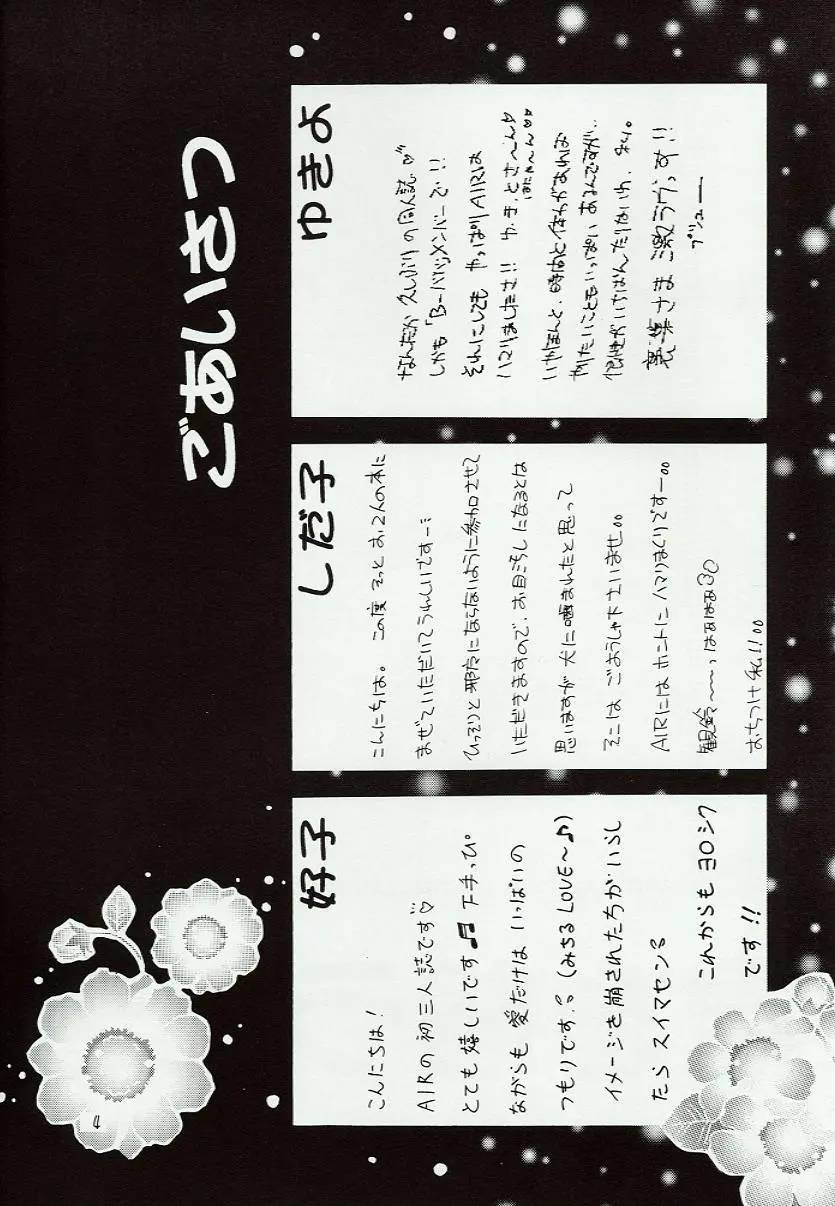 ごあいさつ
好子
こんにちは!
AIRの初三人誌です♡
とても嬉しいです♬ 下手っぴ
ながらも 愛だけは いっぱいの
つもりです。(みちるLOVE〜♪)
イメージを崩された方がいらし
たら スイマセン。
これからも ヨロシク
です!!
しだ子
こんにちは。この度 そっと お2人の本に
まぜていただいて うれしいですー
ひっそりと 邪魔にならないように参加させて
いただきますので、お目汚しになるとは
思いますが 犬に噛まれたと思って
そこは ごようしゃ下さいませ。
AIRには ホントに ハマりまくりですー。
観鈴〜〜っ はぁはぁ
おちつけ私!!
ゆきよ
なんだか 久しぶりの同人誌♡
しかも「B-バリメンバー」で!!
それにしても やっぱりAIRは
ハマりましたさ!!
いやほんと、時間と体力があれば
作りたいことも いっぱい あるんですが、
裏葉さま 激ラヴっす!!
ブシューー
4